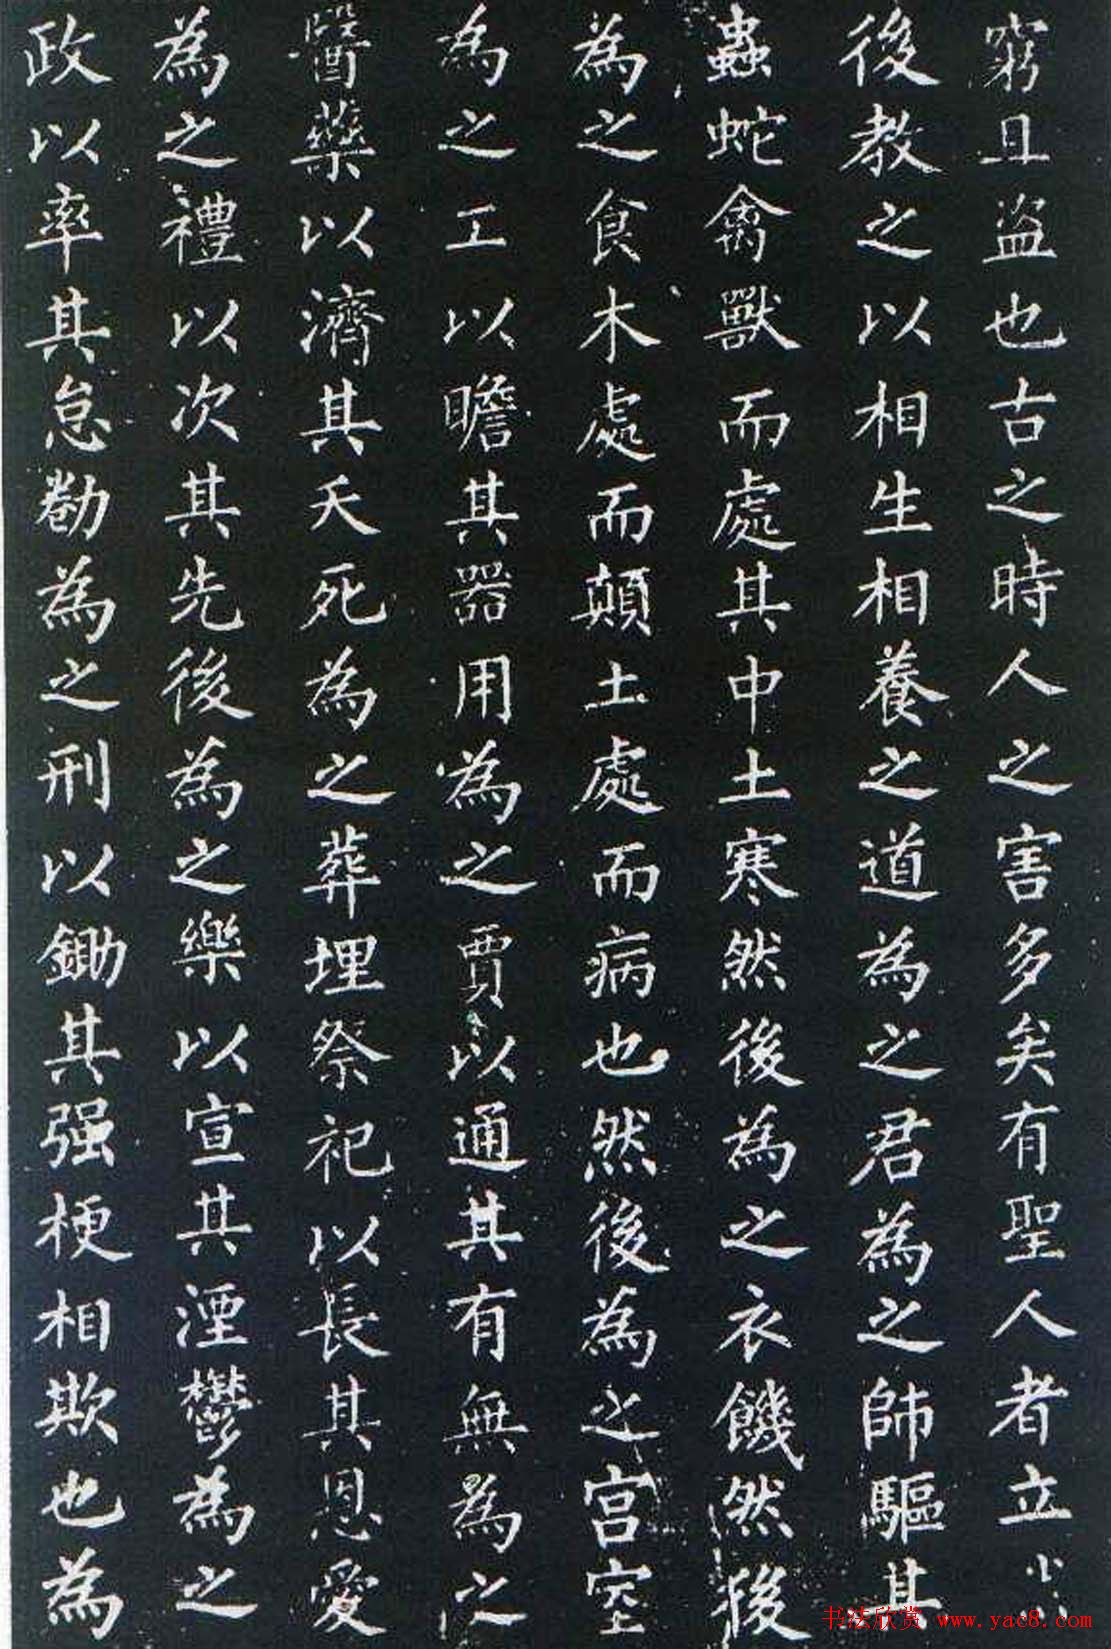 窮且盗也古之時人之害多矣有聖人者立
後教之以相生相養之道為之君為之師驅其
蟲蛇禽獸而處其中土寒然後為之衣饑然後
為之食木處而顛土處而病也然後為之宫室
為之工以瞻其器用為之賈以通其有無為之
醫藥以濟其夭死為之葬埋祭祀以長其恩愛
為之禮以次其先後為之樂以宣其湮鬱為之
政以率其怠勌為之刑以鋤其强梗相欺也為
书法欣赏 www.yac8.com